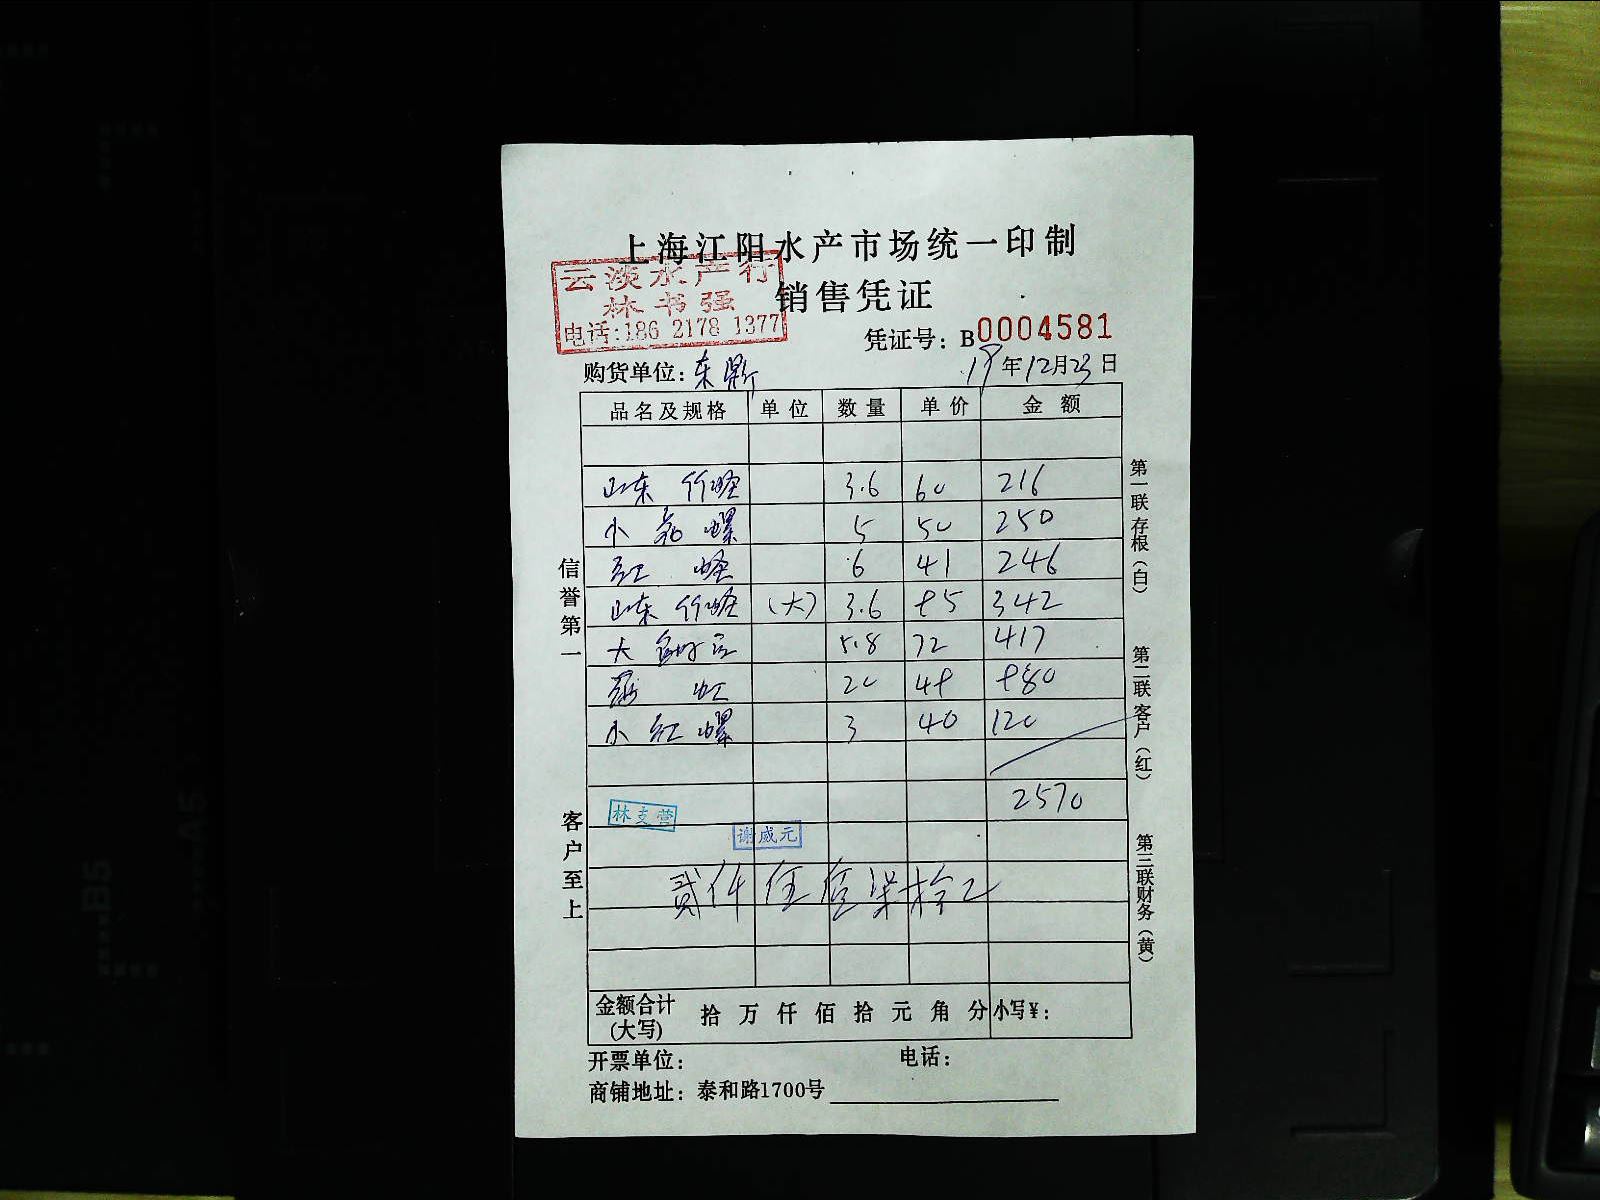 上海江阳水产市场统一印制
云淡水产行
林书强
电话:186 2178 1377
销售凭证
凭证号：B0004581
购货单位：东 19年12月23日
品名及规格 单位 数量 单价 金额
山东 竹蛏 3.6 60 216
小 螺 5 50 250
红 蛏 6 41 246
山东 竹蛏 (大) 3.6 95 342
大 5.8 72 417
虹 20 49 980
小 红 螺 3 40 120
2570
林支营
谢威元
贰仟伍佰柒拾元
金额合计(大写) 拾 万 仟 佰 拾 元 角 分 小写¥：
开票单位： 电话：
商铺地址：泰和路1700号
信誉第一
客户至上
第一联 存根(白)
第二联 客户(红)
第三联 财务(黄)
B5
A5